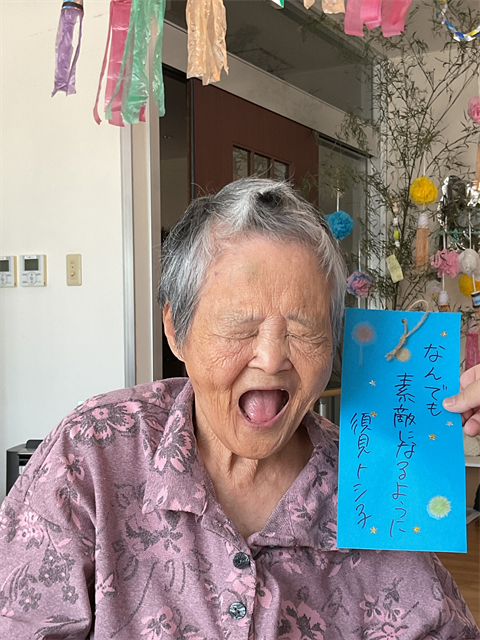 なんでも
素敵になるように
須見トシ子